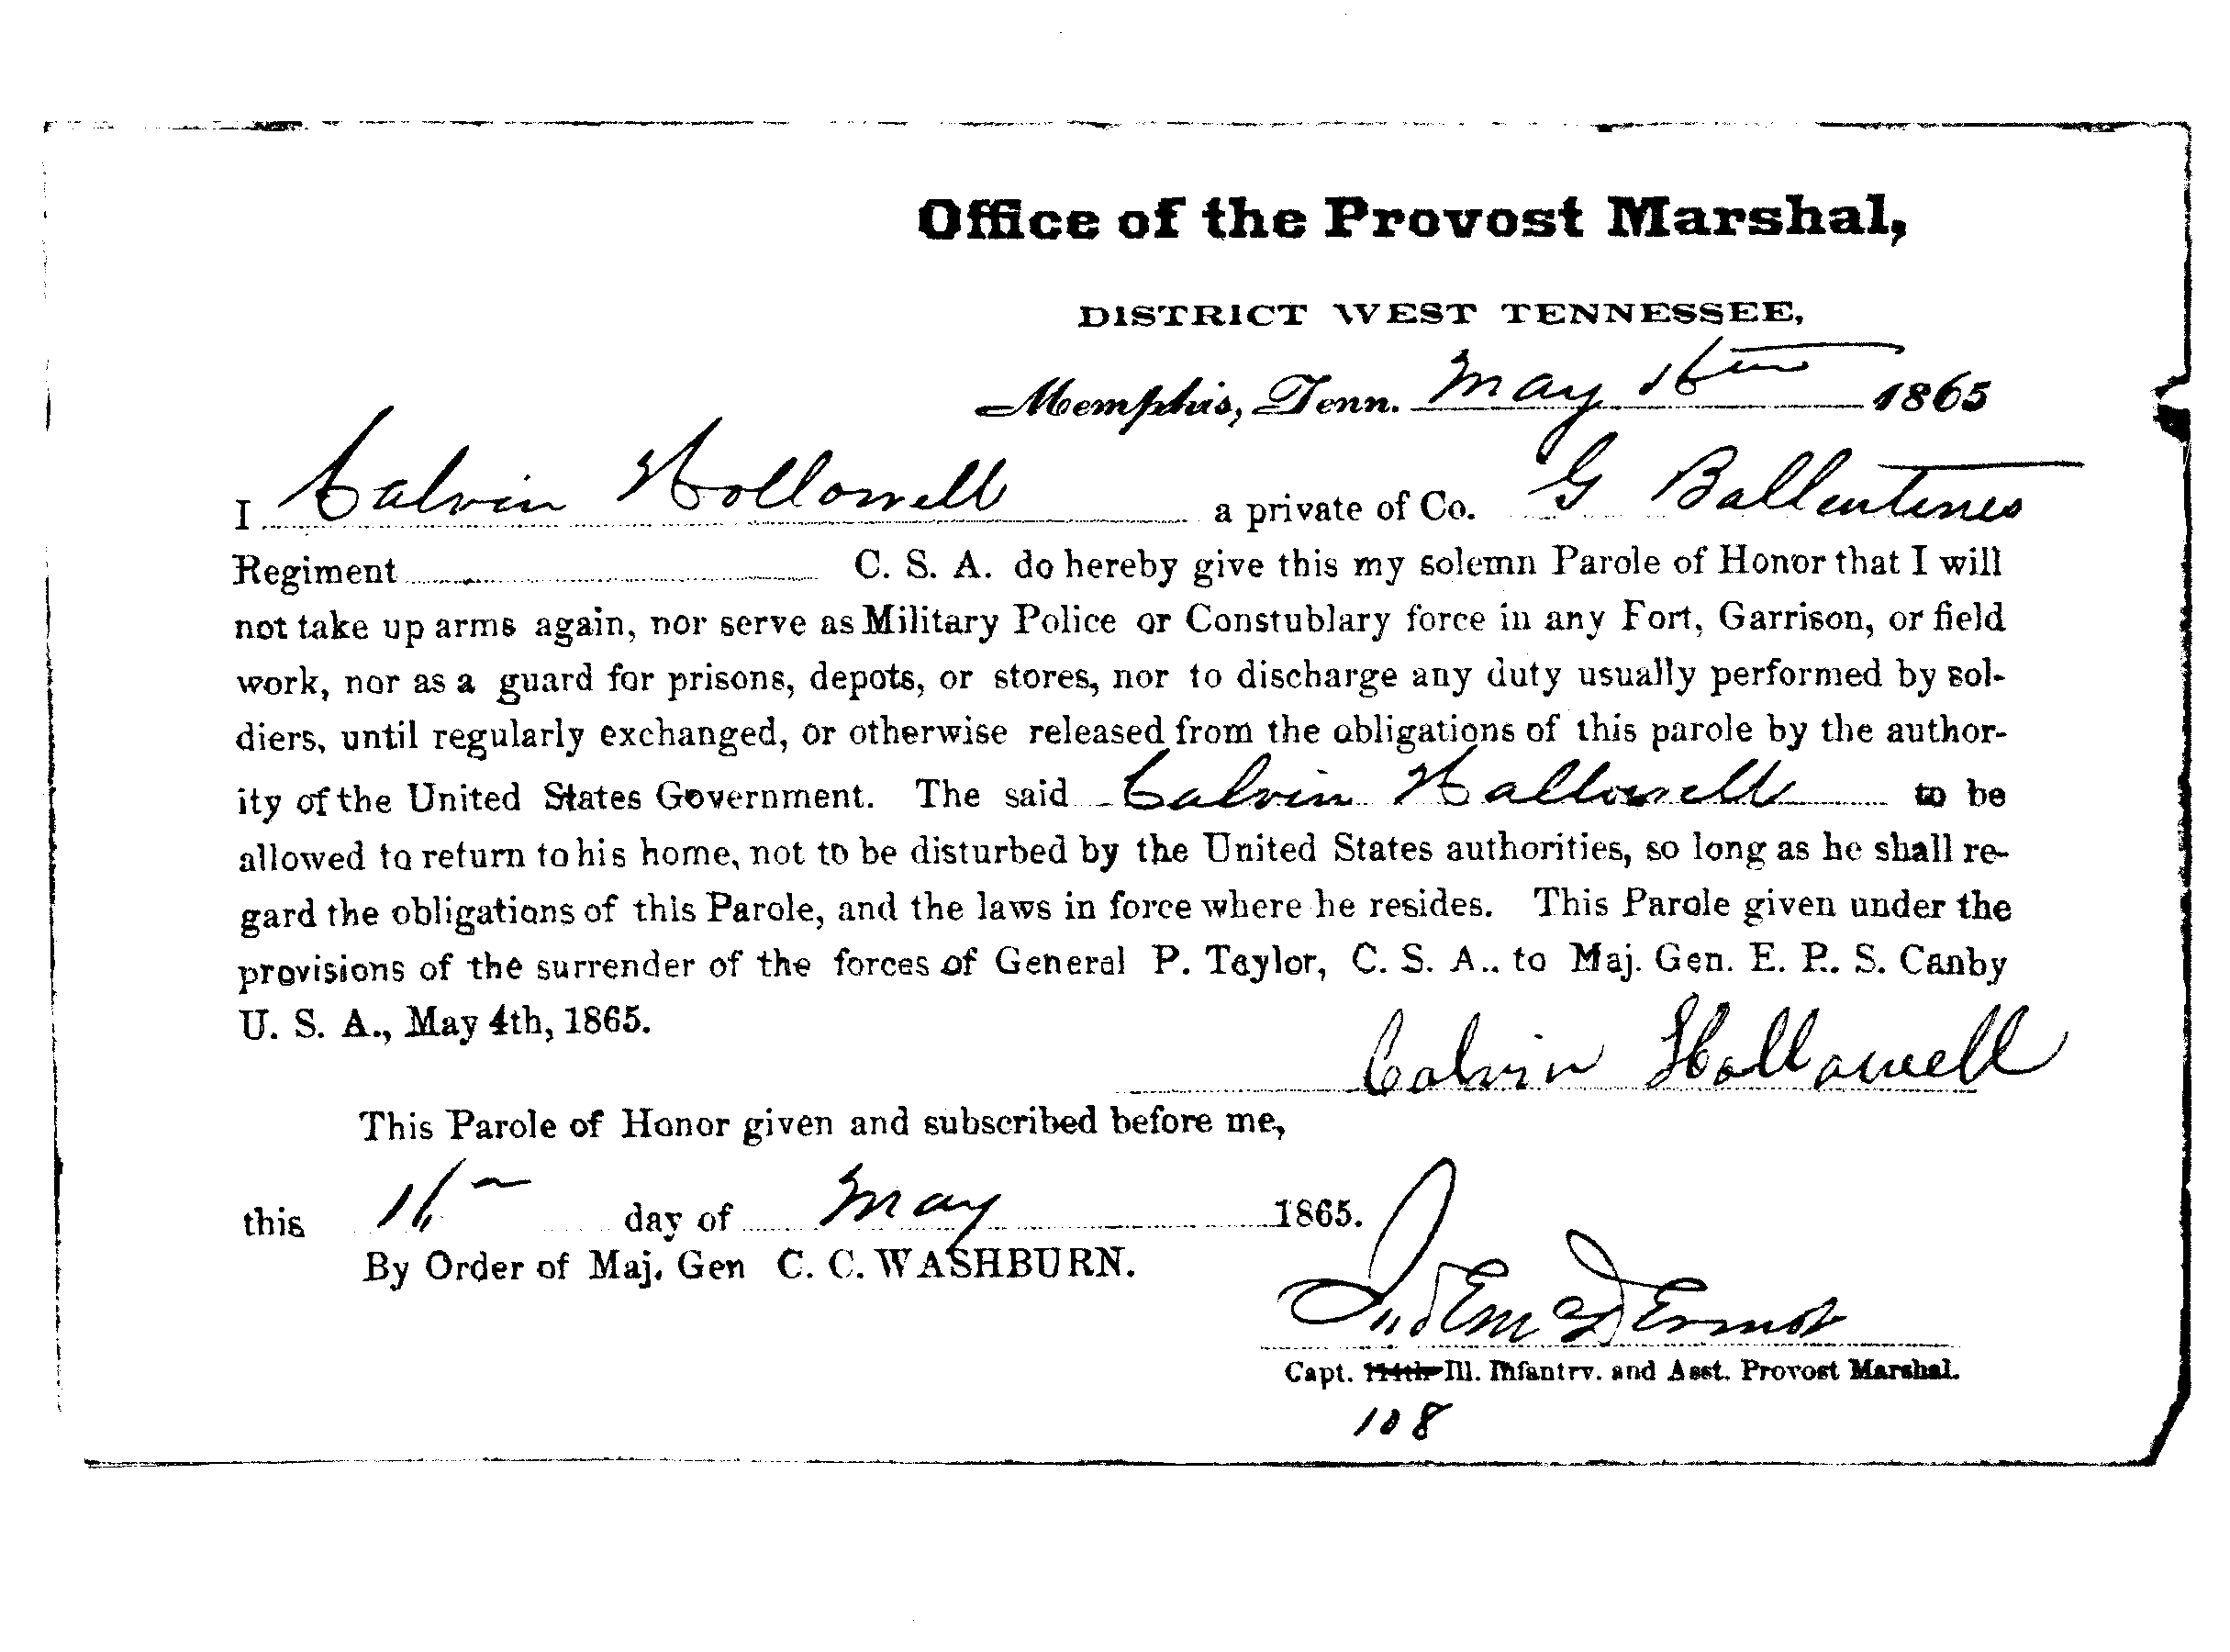 Office of the Provost Marshal,
DISTRICT WEST TENNESSEE,
Memphis, Tenn. May 16th 1865
I Calvin Hollowell a private of Co. G Ballentines
Regiment C. S. A. do hereby give this my solemn Parole of Honor that I will
not take up arms again, nor serve as Military Police or Constublary force in any Fort, Garrison, or field
work, nor as a guard for prisons, depots, or stores, nor to discharge any duty usually performed by sol-
diers, until regularly exchanged, or otherwise released from the obligations of this parole by the author-
ity of the United States Government. The said Calvin Hallowell to be
allowed to return to his home, not to be disturbed by the United States authorities, so long as he shall re-
gard the obligations of this Parole, and the laws in force where he resides. This Parole given under the
provisions of the surrender of the forces of General P. Taylor, C. S. A.. to Maj. Gen. E. R. S. Canby
U. S. A., May 4th, 1865.
Calvin Hollowell
This Parole of Honor given and subscribed before me,
this 16 day of May 1865.
By Order of Maj. Gen C. C. WASHBURN.
Capt. Ill. Infantry. and Asst. Provost Marshal.
108